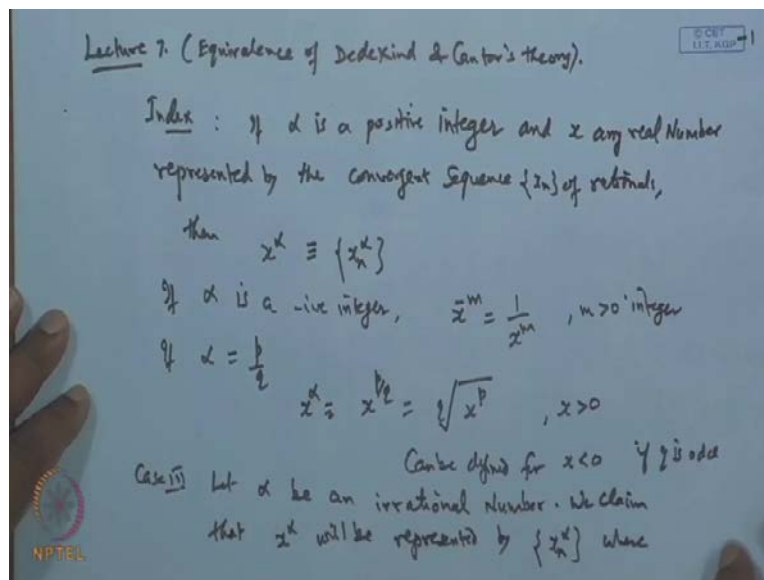 Lecture 7. (Equivalence of Dedekind & Cantor's theory).
© CET
I.I.T. KGP
-1
Index : If α is a positive integer and x any real Number
represented by the convergent sequence {xn} of rationals,
then x^α ≡ {xn^α}
If α is a -ive integer, x^-m = 1/x^m , m>0 integer
If α = p/q
x^α = x^p/q = q√x^p , x>0
Can be defined for x<0 if q is odd
Case III Let α be an irrational Number. We Claim
that x^α will be represented by {xn^α} where
NPTEL